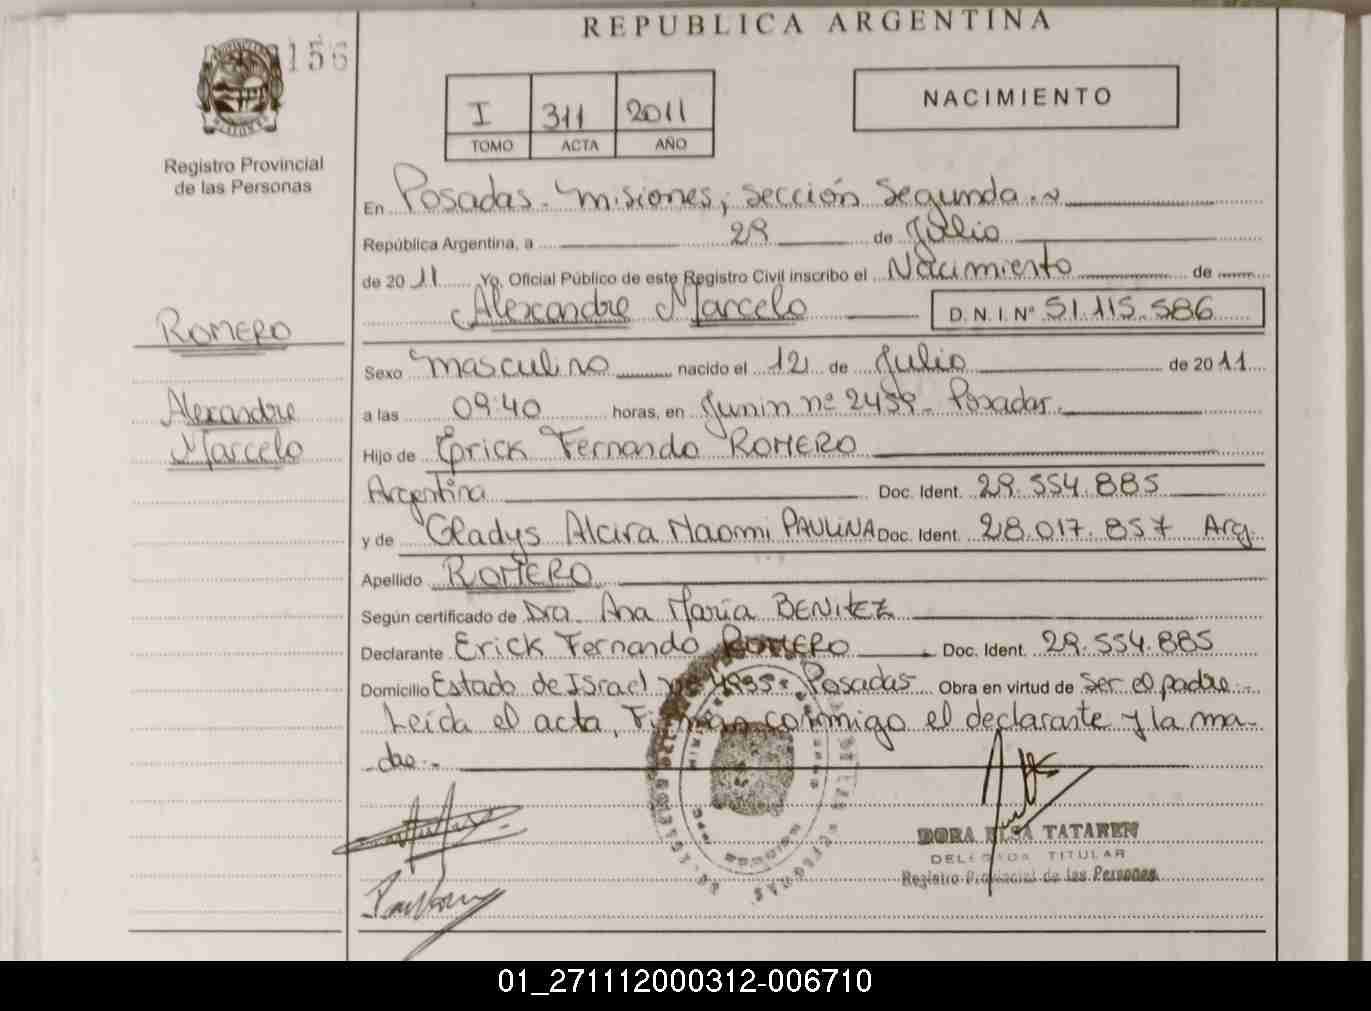 REPUBLICA ARGENTINA
156
I 311 2011
TOMO ACTA AÑO
NACIMIENTO
Registro Provincial
de las Personas
En Posadas - Misiones, sección Segunda.
República Argentina, a 29 de Julio
de 2011 Yo, Oficial Público de este Registro Civil inscribo el Nacimiento de
Alexandre Marcelo D.N.I.Nº 51.115.586
ROMERO
Alexandre
Marcelo
Sexo masculino nacido el 12 de Julio de 2011
a las 09:40 horas, en Junin nº Posadas.
Hijo de Erick Fernando ROMERO
Argentina Doc. Ident. 29.554.885
y de Gladys Alcira Naomi PAULINA Doc. Ident. 28.017.857 Arg.
Apellido ROMERO
Según certificado de Dra. Ana María BENITEZ
Declarante Erick Fernando ROMERO Doc. Ident. 29.554.885
Domicilio Estado de Israel Posadas Obra en virtud de ser el padre.-
Leída el acta, Firman conmigo el declarante y la ma-
dre.-
DORA ELSA TATAREN
DELEGADA TITULAR
Registro Provincial de las Personas
01_271112000312-006710